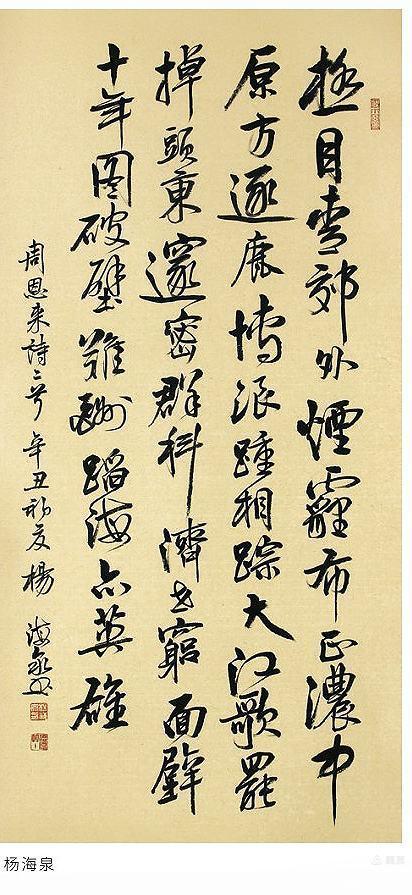 極目青郊外煙霾布正濃中
原方逐鹿博浪踵相踪大江歌罷
掉頭東邃密群科濟世窮面壁
十年圖破壁難酬蹈海亦英雄
周恩来詩二首 辛丑初夏楊海泉
杨海泉